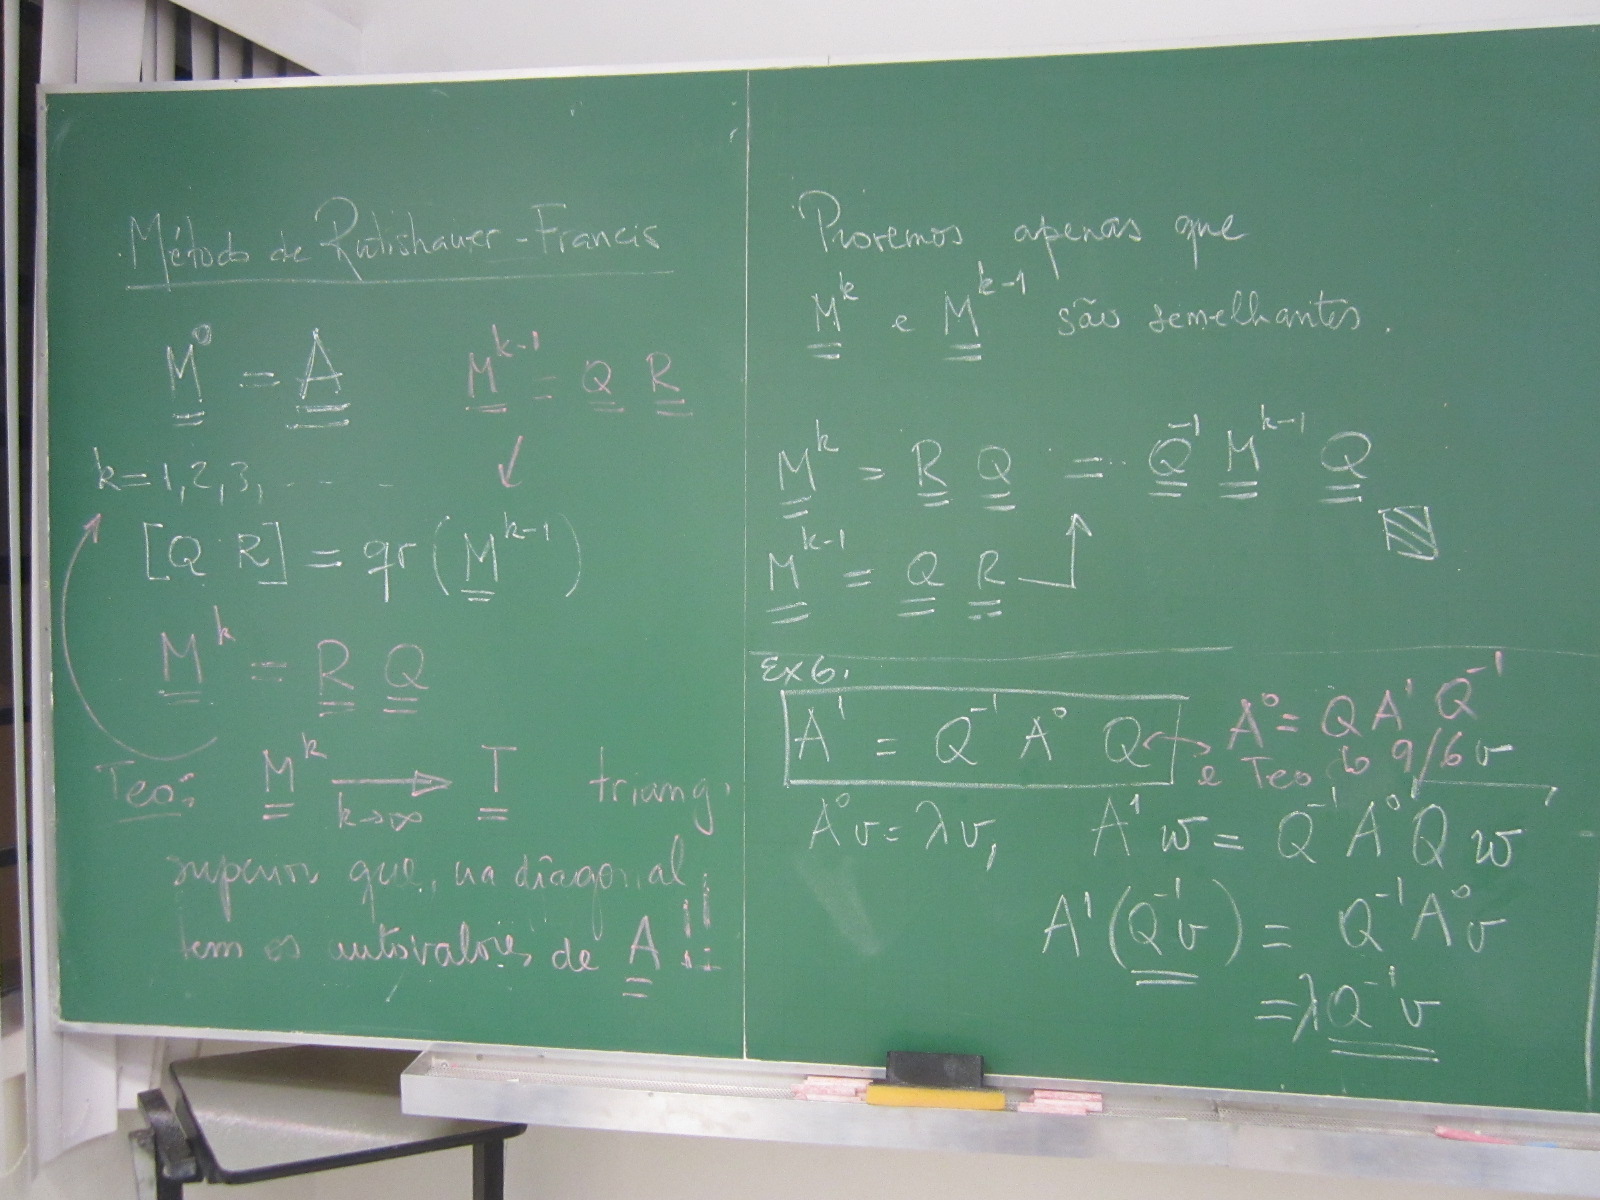 Método de Rutishauer-Francis
M⁰ = A
M^{k-1} = Q R
k=1,2,3,- - -
[Q R] = qr(M^{k-1})
M^k = R Q
Teo: M^k → T triang.
k→∞
superior que, na diagonal,
tem os autovalores de A !!
Provemos apenas que
M^k e M^{k-1} são semelhantes.
M^k = R Q = Q⁻¹ M^{k-1} Q
M^{k-1} = Q R
Ex 6.
A¹ = Q⁻¹ A⁰ Q
A⁰ = Q A¹ Q⁻¹
e Teo 9/6
v
A⁰v = λv, A¹ w = Q⁻¹ A⁰ Q w
A¹(Q⁻¹v) = Q⁻¹A⁰v
= λQ⁻¹v